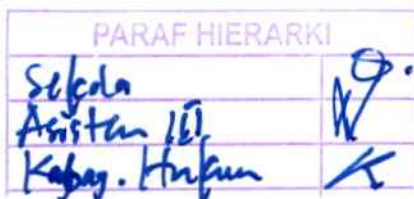 PARAF HIERARKI
Sekda
Asisten III
Kabag. Hukum